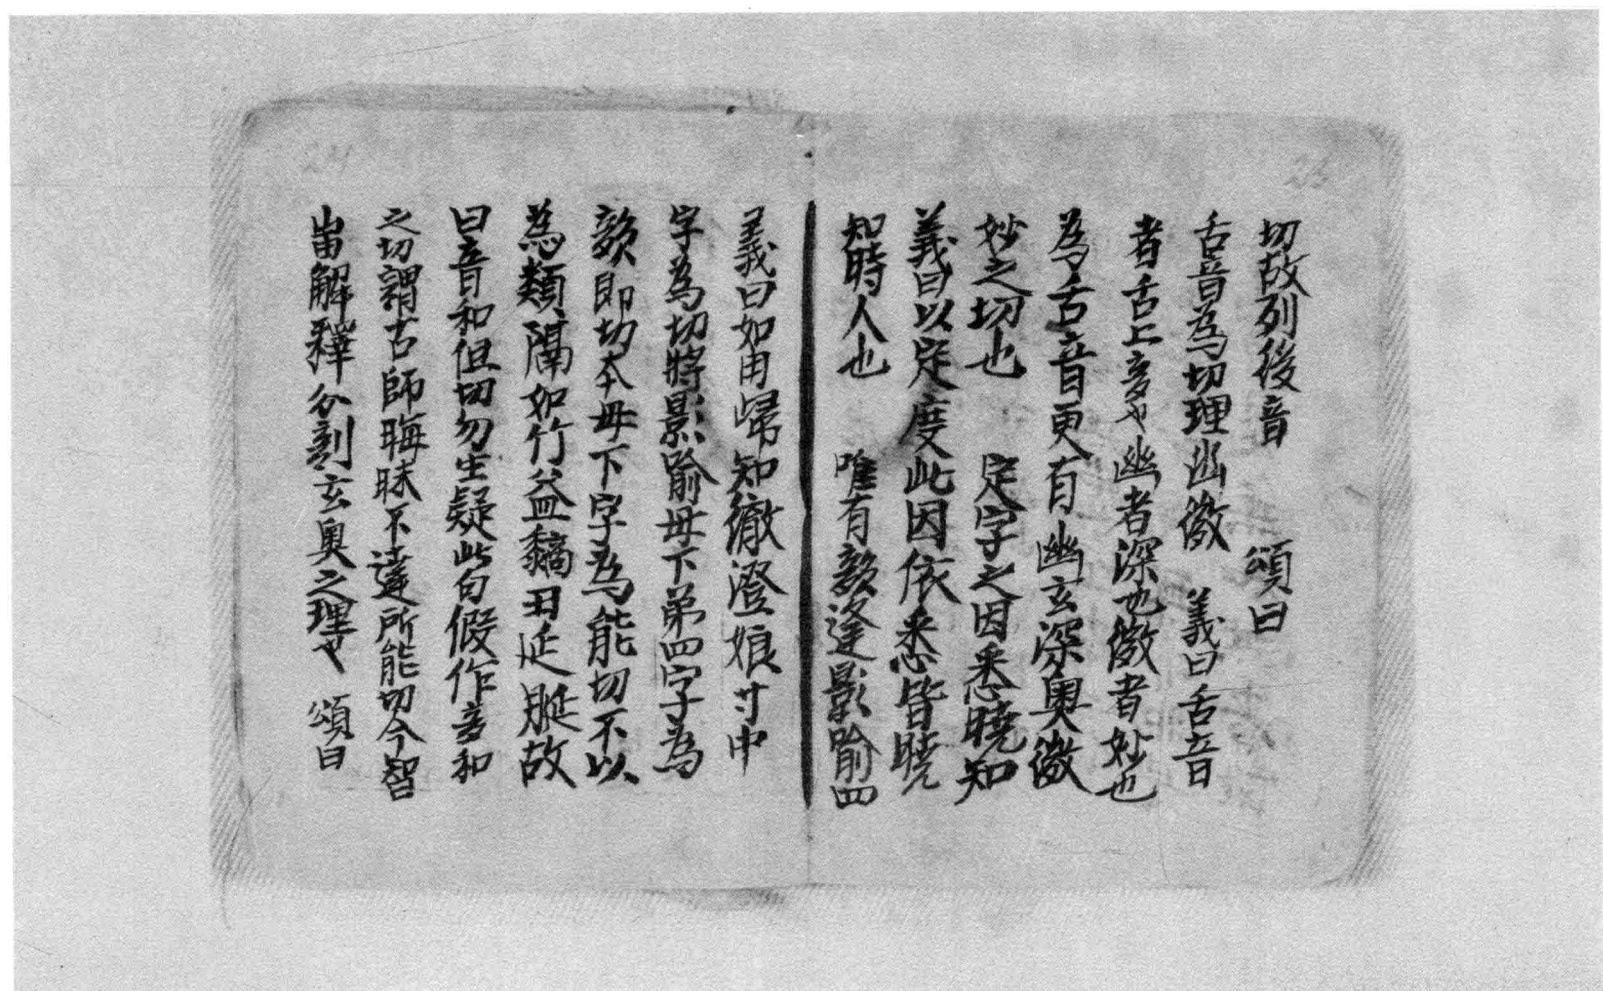 切故列後音 頌曰
舌音為切理幽微 義曰舌音
者舌上音也幽者深也微者妙也
為舌音更有幽玄深奧微
妙之切也 定字之因悉曉知
義曰以定度此因依悉皆曉
知時人也 唯有韻逢影喻四
義曰如用歸知徹澄娘寸中
字為切將影喻母下弟四字為
韻即切本母下字為能切不以
為類隔如竹益䵔丑延𦐂故
曰音和但切勿生疑此句假作音和
之切謂古師晦昧不達所能切今智
當解釋分剖玄奧之理也 頌曰